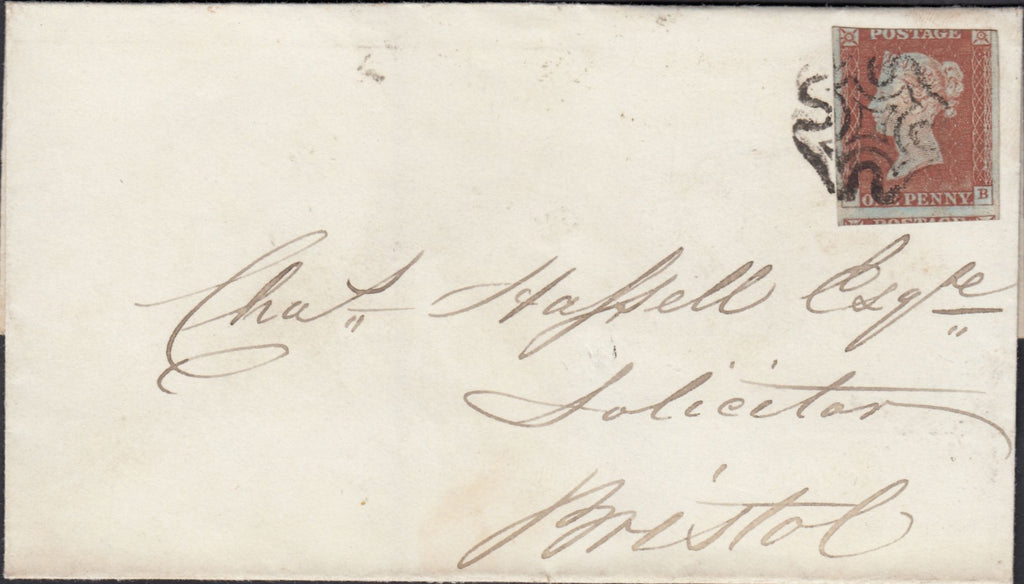 POSTAGE
ONE PENNY B
POSTAGE
Chas. Hassell Esqre
Solicitor
Bristol